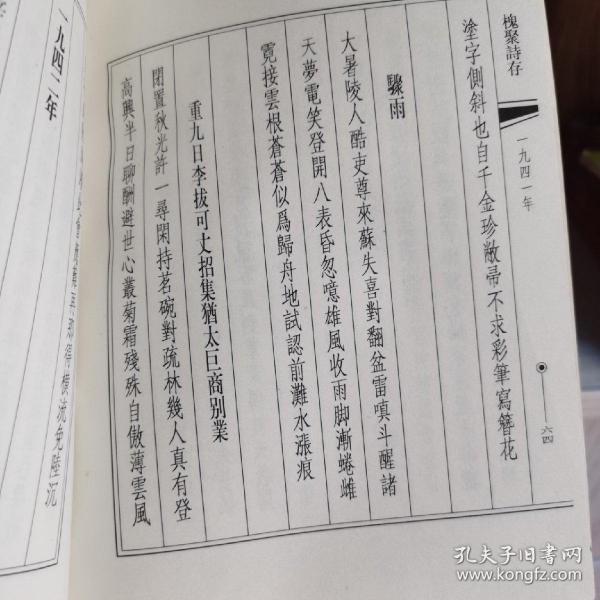 槐聚詩存
一九四一年
六四
塗字側斜也自千金珍敝帚不求彩筆寫簪花
驟雨
大暑陵人酷吏尊來蘇失喜對翻盆雷嗔斗醒諸
天夢電笑登開八表昏忽噫雄風收雨腳漸蜷雌
霓接雲根蒼蒼似爲歸舟地試認前灘水漲痕
重九日李拔可丈招集猶太巨商别業
閉置秋光許一尋閑持茗碗對疏林幾人真有登
高興半日聊酬避世心叢菊霜殘殊自傲薄雲風
一九四二年
得橫流免陸沉
孔夫子旧书网
www.kongfz.com